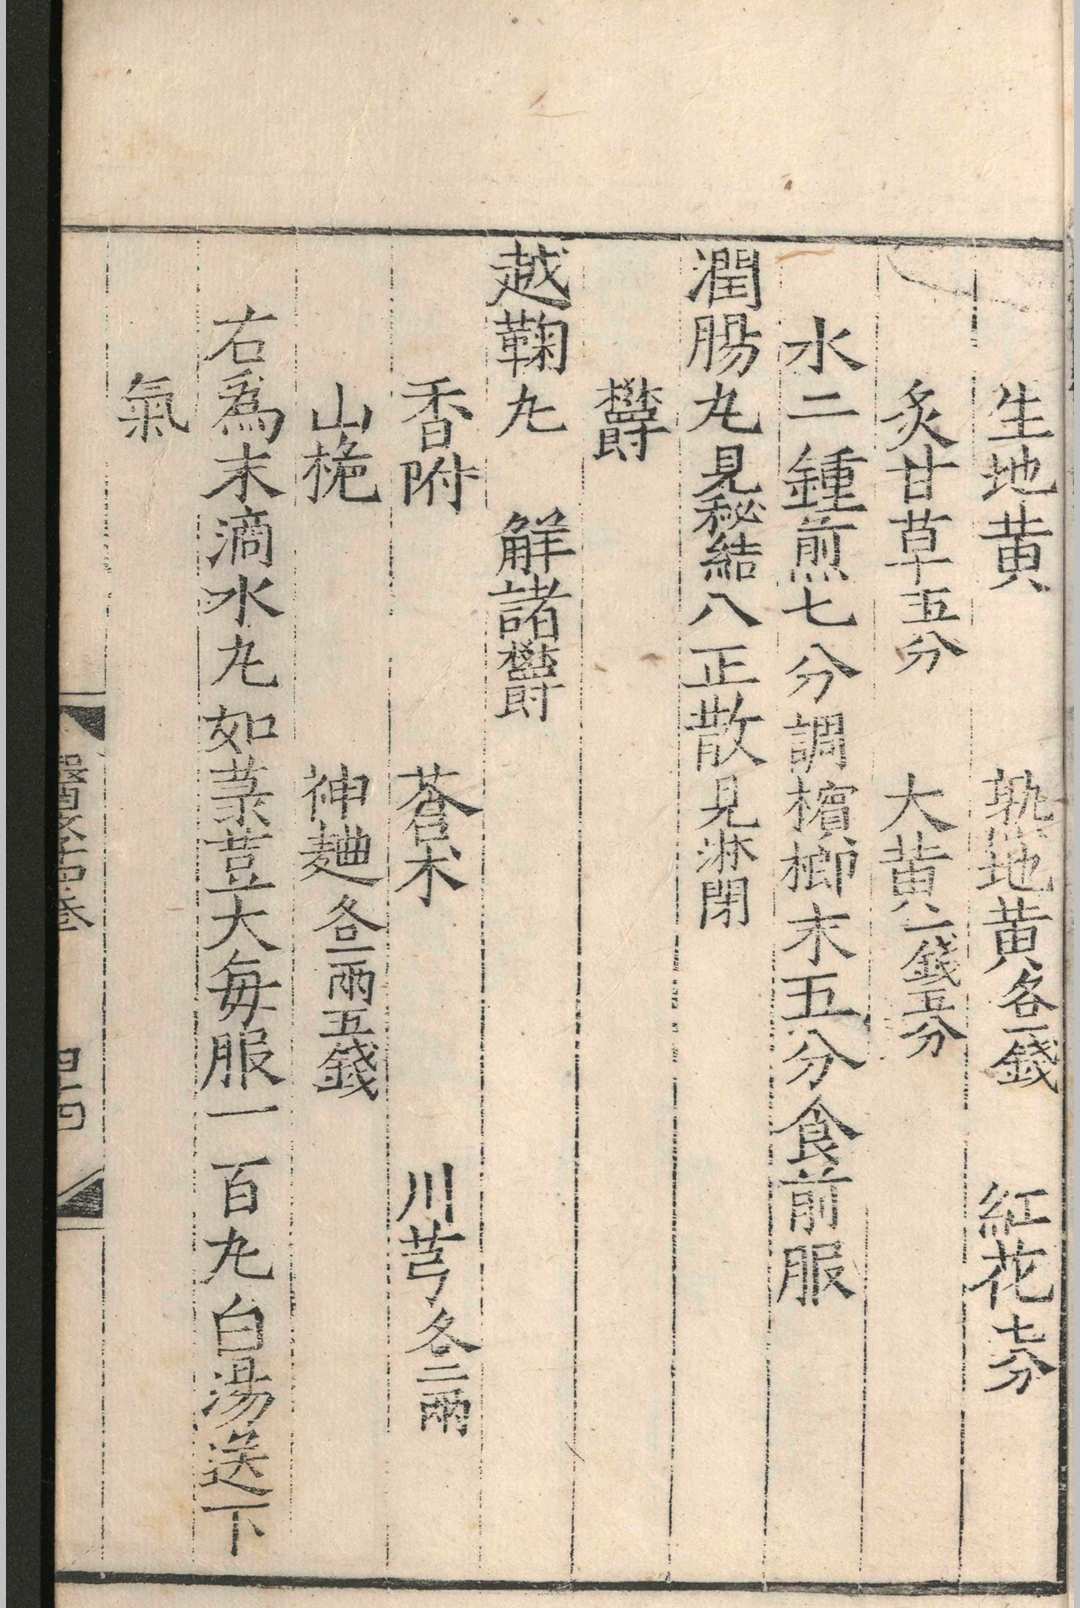 生地黄 熟地黄各一錢 紅花七分
炙甘草五分 大黄二錢五分
水二鍾煎七分調檳榔末五分食前服
潤腸丸見秘結八正散見淋閉
欝
越鞠丸 解諸欝
香附 蒼术 川芎各二兩
山梔 神麯各一兩五錢
右為末滴水丸如菉荳大每服一百丸白湯送下
氣